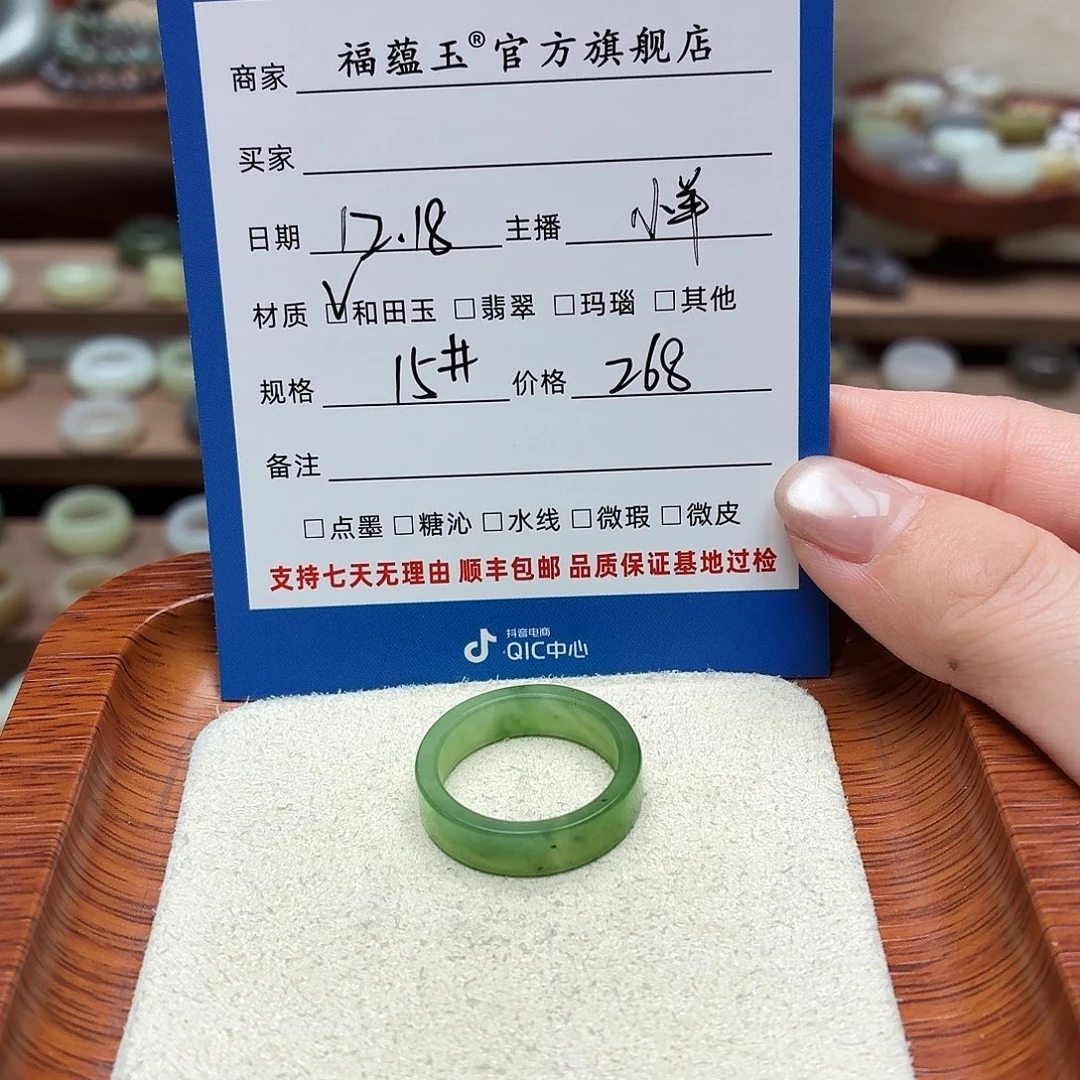 商家 福蕴玉®官方旗舰店
买家
日期 12.18 主播 小羊
材质 ☑和田玉 □翡翠 □玛瑙 □其他
规格 15# 价格 268
备注
□点墨 □糖沁 □水线 □微瑕 □微皮
支持七天无理由 顺丰包邮 品质保证基地过检
抖音电商
QIC中心